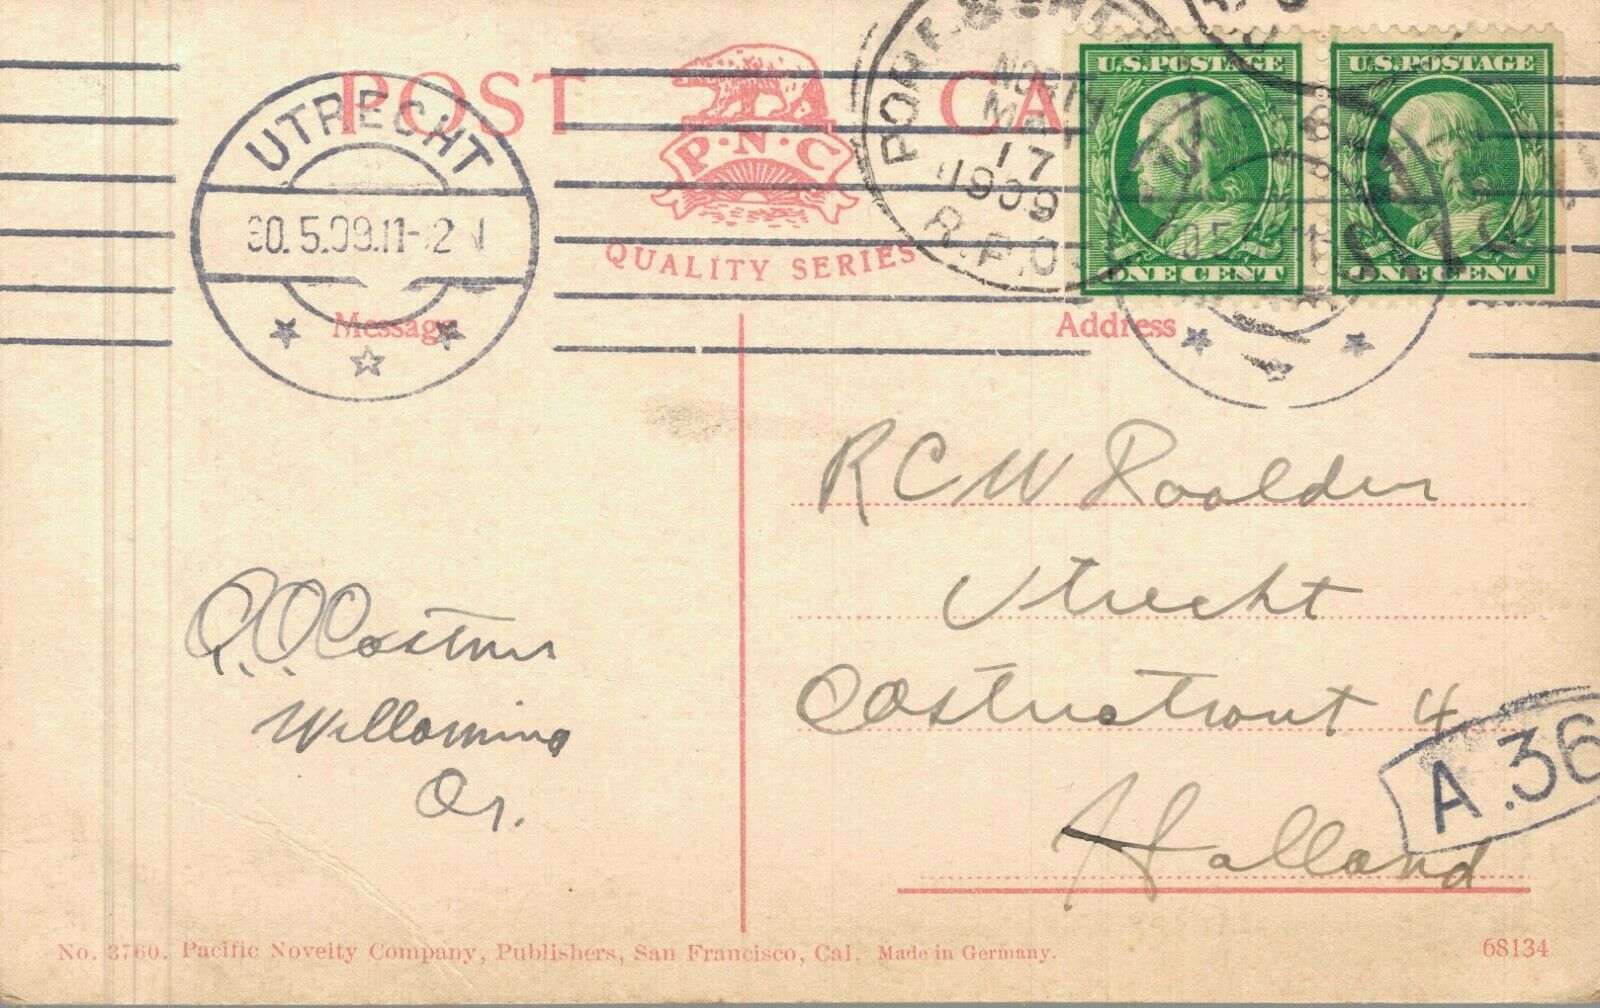 POST CA
P·N·C
QUALITY SERIES
UTRECHT
30.5.09.11-12 N
NORTH
MAY
17
1909
R.P.O.
U.S. POSTAGE
ONE CENT
U.S. POSTAGE
ONE CENT
Message
Address
R C W Roolder
Utrecht
Willamina
Or.
4
Holland
A.36
No. 3760. Pacific Novelty Company, Publishers, San Francisco, Cal. Made in Germany.
68134